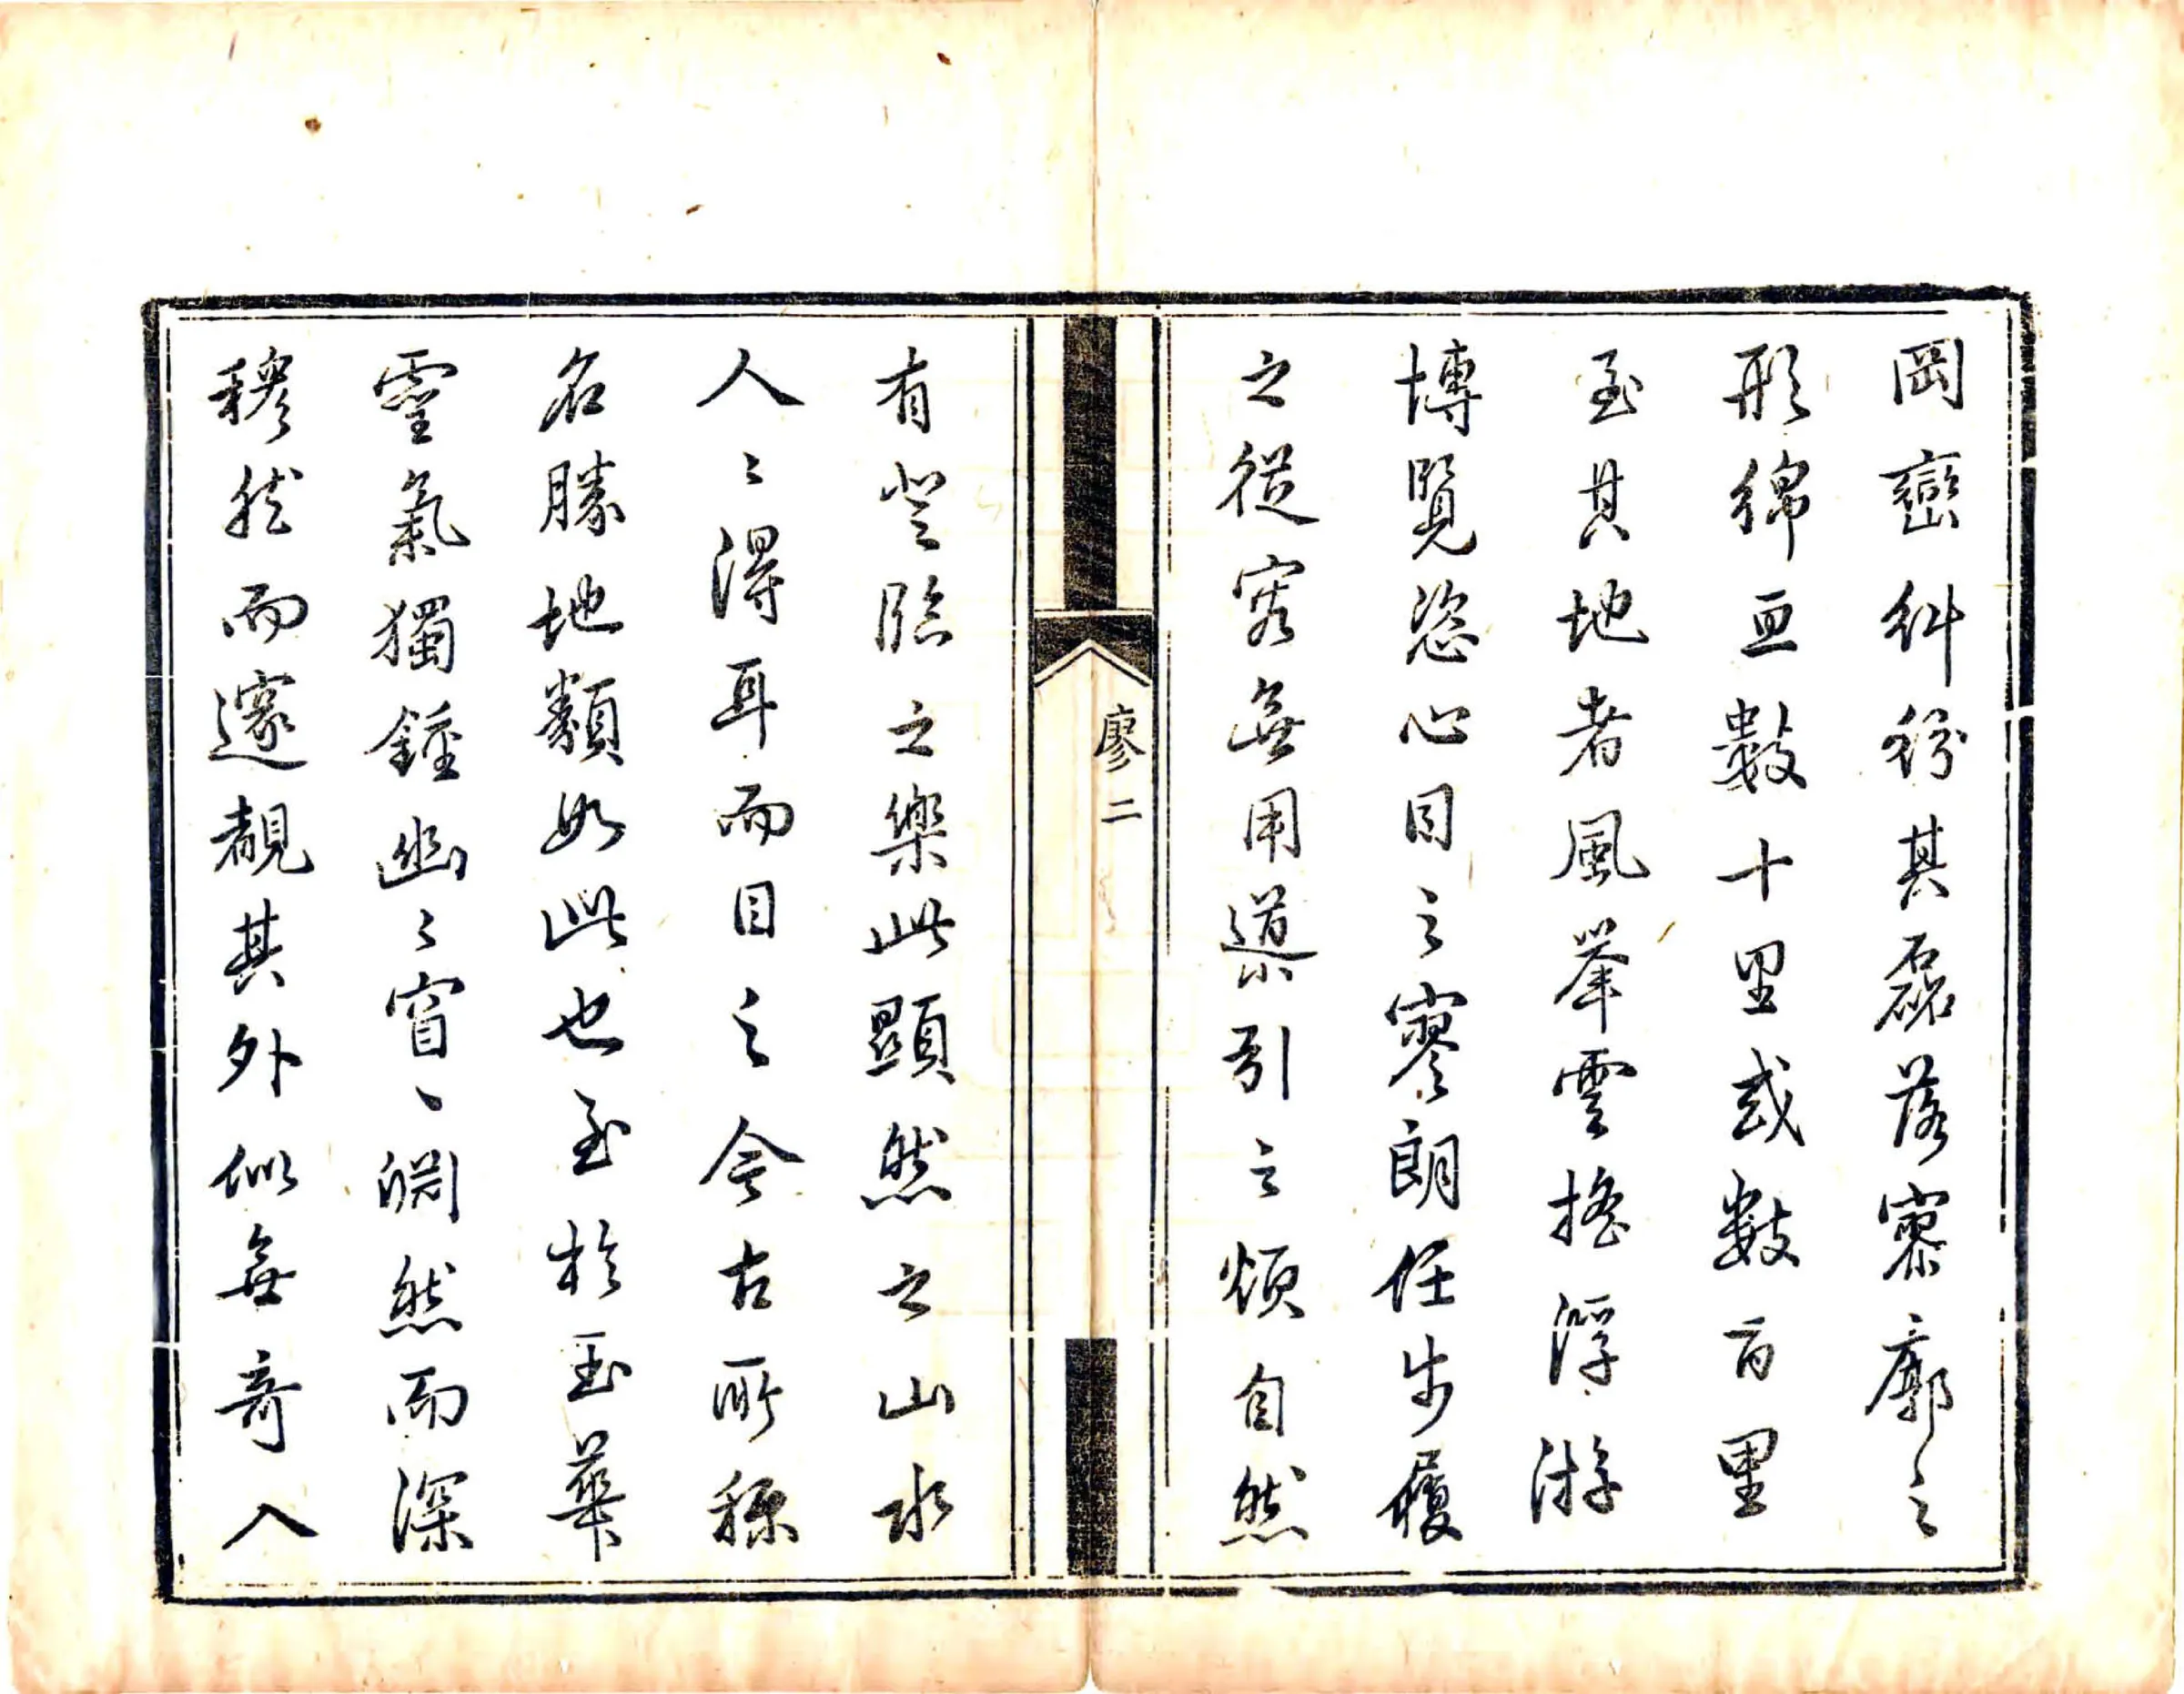 岡巒糾紛其磊落寮廓之
形綿亘數十里或數百里
至其地者風舉雲搖浮游
博覽恣心目之寥朗任步履
之從容無用導引之煩自然
廖二
有登臨之樂此顯然之山水
人〻得耳而目之今古所稱
名勝地類如此也至於玉華
靈氣獨鍾幽〻窅〻淵然而深
穆然而邃覩其外似無奇入